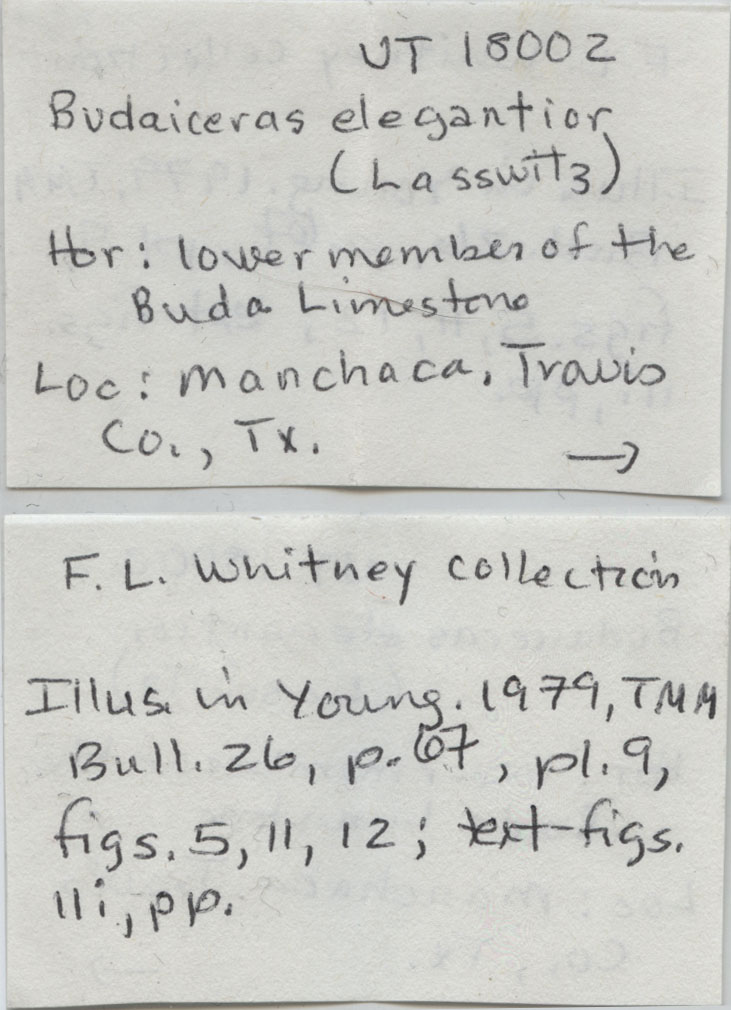 UT 18002
Budaiceras elegantior
(Lasswitz)
Hor: lower member of the
Buda Limestone
Loc: Manchaca, Travis
Co., Tx.
→
F. L. Whitney collection
Illus. in Young. 1979, TMM
Bull. 26, p. 67, pl. 9,
figs. 5, 11, 12; text-figs.
11i, pp.